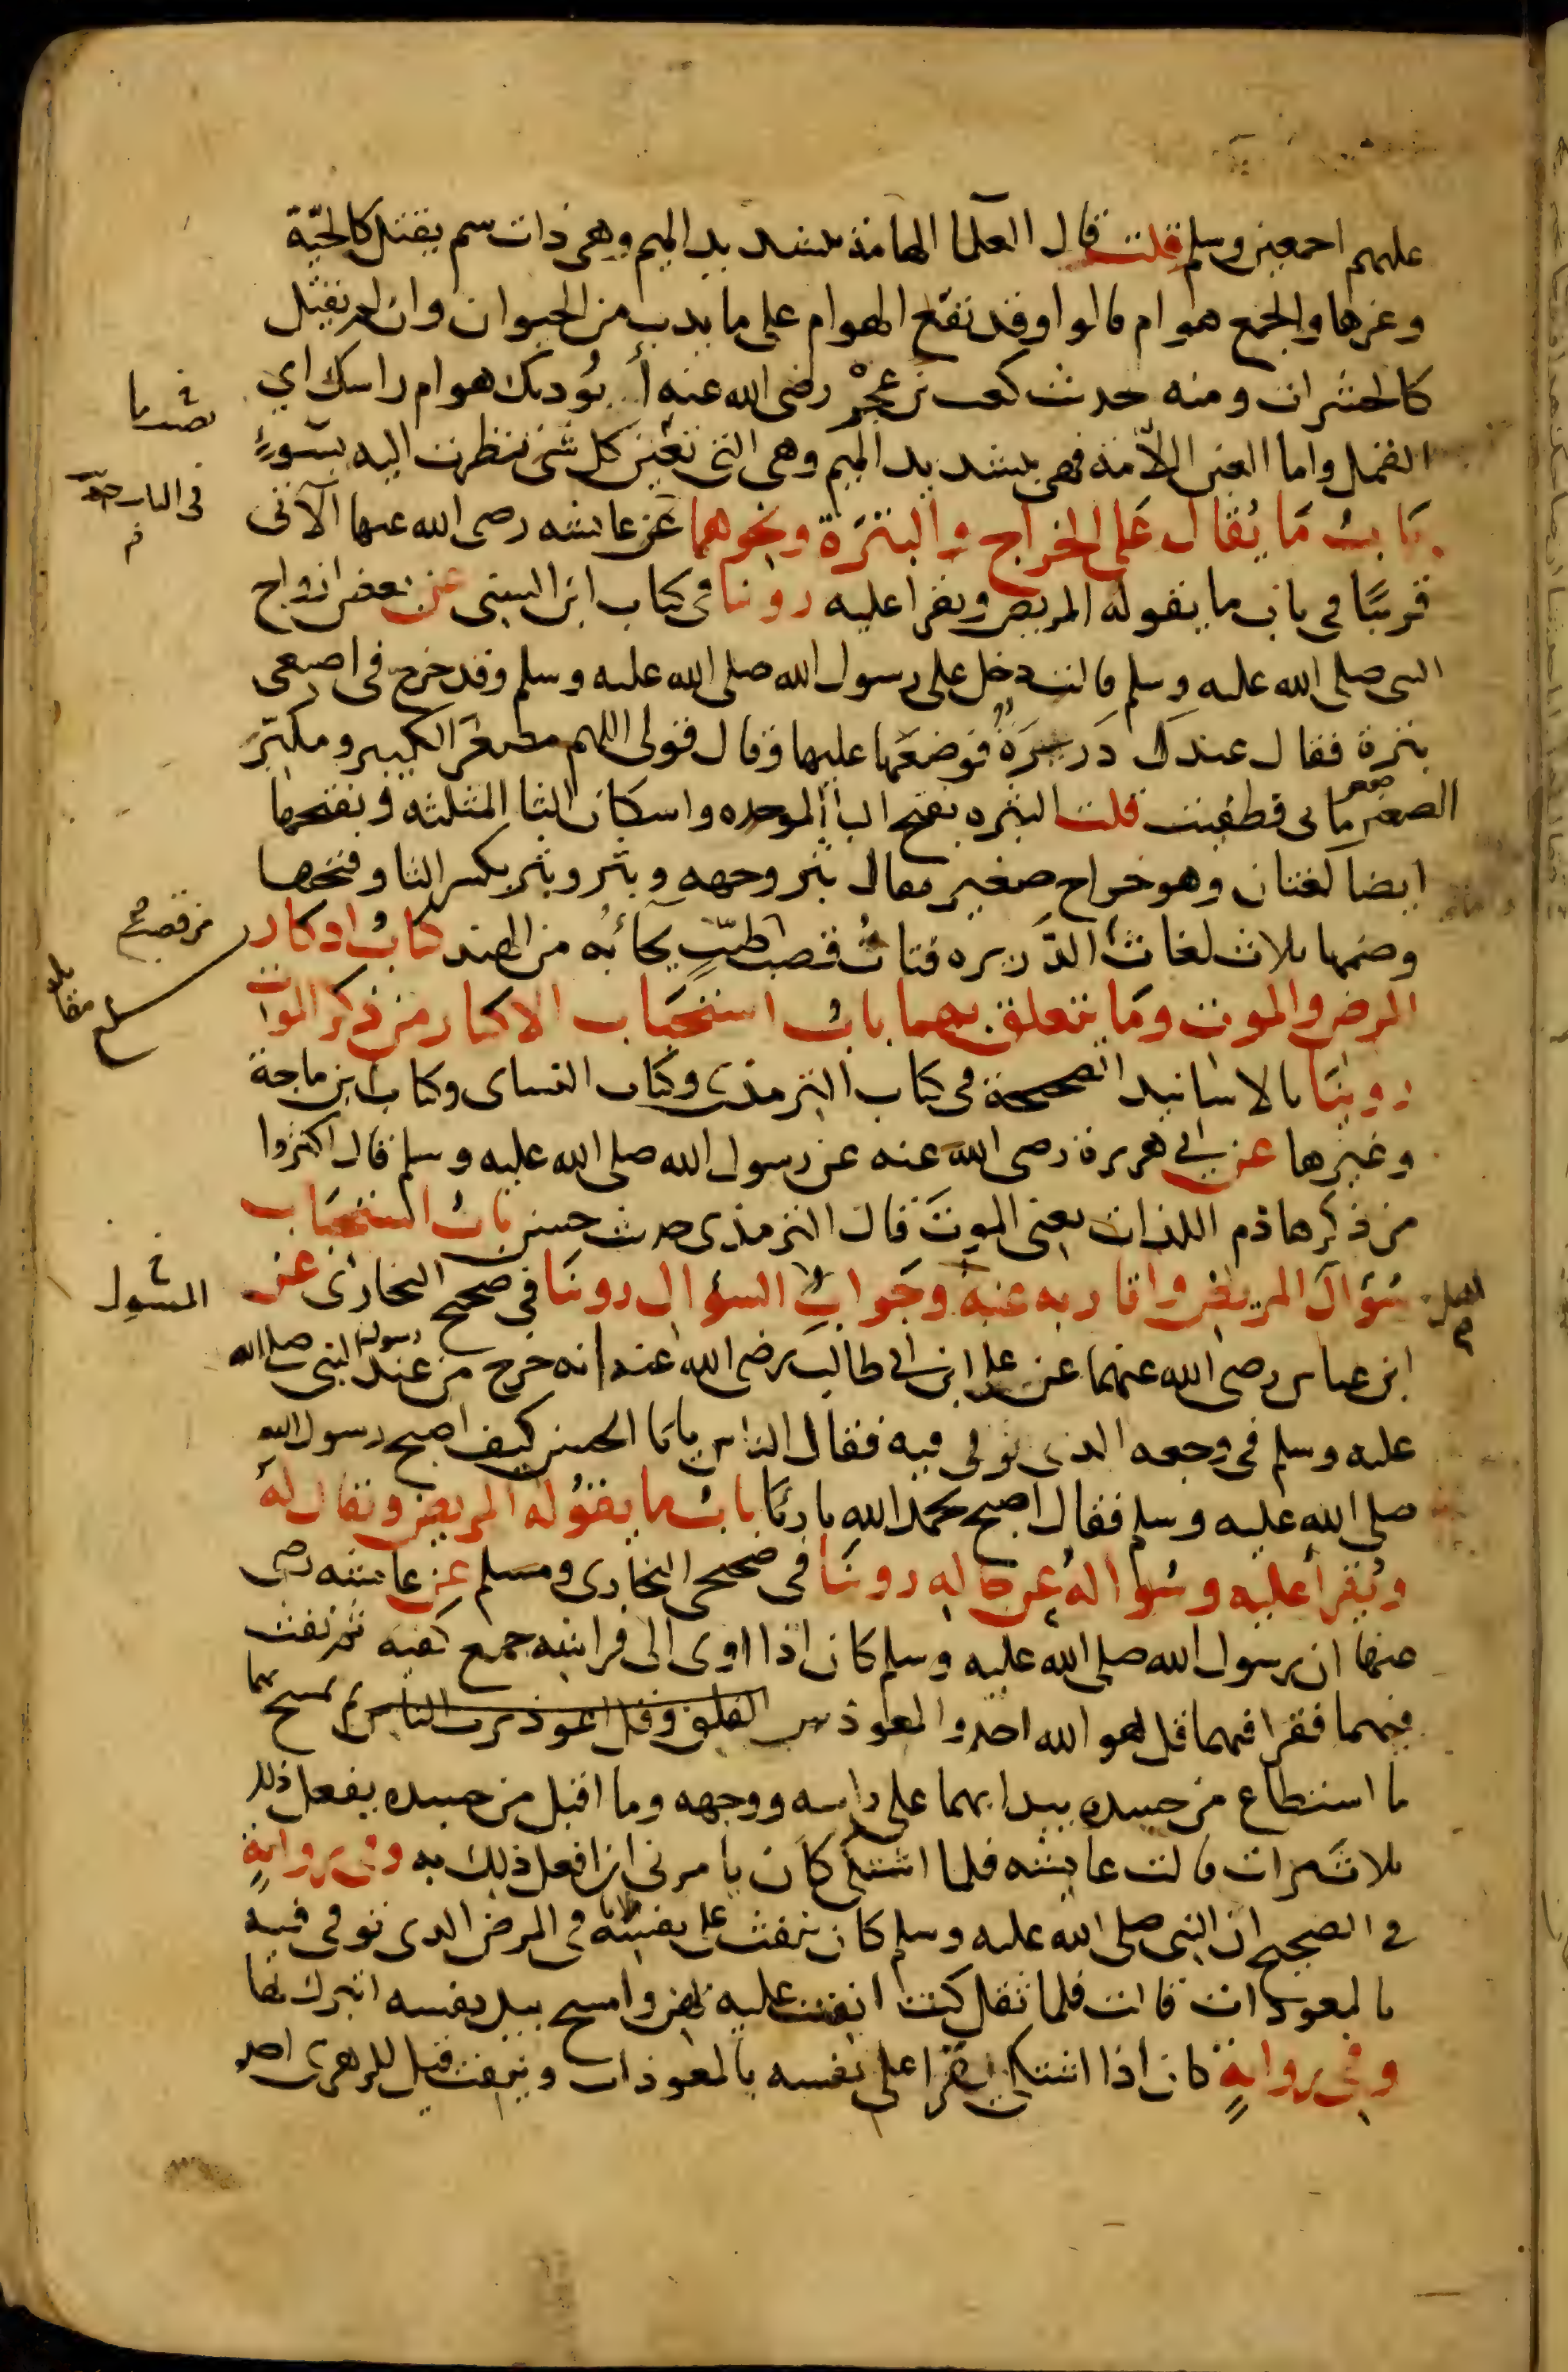 عليهم اجمعين وسلم قلت قال العلما الهامة بتشديد الميم وهي ذات سم يقتل كالحيّة
وغيرها والجمع هوام قالوا وقد تقع الهوام على ما يدب من الحيوان وان لم يقتل
كالحشرات ومنه حديث كعب بن عجرة رضى الله عنه أيؤذيك هوام راسك اي
القمل واما العين اللامّة فهى بتشديد الميم وهى التى تعين كل شى نظرت اليه بسوء
باب ما يقال على الخراج والبثرة ونحوهما عن عايشه رضى الله عنها الآتى
قريبًا فى باب ما يقوله المريض ويقرا عليه روينا فى كتاب ابن السنى عن بعض ازواج
النبى صلى الله عليه وسلم قالت دخل على رسول الله صلى الله عليه وسلم وقد خرج فى اصبعى
بثرة فقال عندك ذريرة فوضعها عليها وقال قولى اللهم مصغر الكبير ومكبّر
الصغير صغر ما بى فطفيت قلت البثره بفتح الباء الموحده واسكان الثا المثلثه وبفتحها
ايضا لغتان وهو خراج صغير يقال بثر وجهه وبثر وبثر بكسر الثا وفتحها
وضمها ثلاث لغات الذريره فتات قصب طيب يجآء به من الهند كتاب اذكار
المرض والموت وما يتعلق بهما باب استحباب الاكثار من ذكر الموت
روينا بالاسانيد الصحيحة فى كتاب الترمذى وكتاب النساى وكتاب ابن ماجة
وغيرها عن ابي هريرة رضى الله عنه عن رسول الله صلى الله عليه وسلم قال اكثروا
من ذكر هاذم اللذات يعنى الموت قال الترمذى حديث حسن باب استحباب
سؤال المريض واقاربه عنه وجواب السؤال روينا في صحيح البخارى عن
المسول
ابن عباس رضى الله عنهما عن على ابن ابى طالب رضى الله عنه انه خرج من عند رسول النبى صلى الله
عليه وسلم فى وجعه الذى توفى فيه فقال الناس يابا الحسن كيف اصبح رسول الله
صلى الله عليه وسلم فقال اصبح بحمد الله بارئا باب ما يقوله المريض ويقال له
ويقرأ عليه وسؤاله عن حاله روينا فى صحيحى البخارى ومسلم عن عايشه رضى
عنها ان رسول الله صلى الله عليه وسلم كان اذا اوى الى فراشه جمع كفيه ثم نفث
فيهما فقرا فيهما قل هو الله احد والمعوذتين الفلق وقل اعوذ برب الناس ثم يمسح بهما
ما استطاع من جسده يبدا بهما على راسه ووجهه وما اقبل من جسده يفعل ذلك
ثلاث مرات قالت عايشه فلما اشتكى كان يامرنى ان افعل ذلك به وفى رواية
فى الصحيح ان النبى صلى الله عليه وسلم كان ينفث على نفسه فى المرض الذى توفى فيه
بالمعوذات قالت فلما ثقل كنت انفث عليه بهن وامسح بيد نفسه لبركتها
وفى رواية كان اذا اشتكى يقرا على نفسه بالمعوذات وينفث قيل للزهرى احد